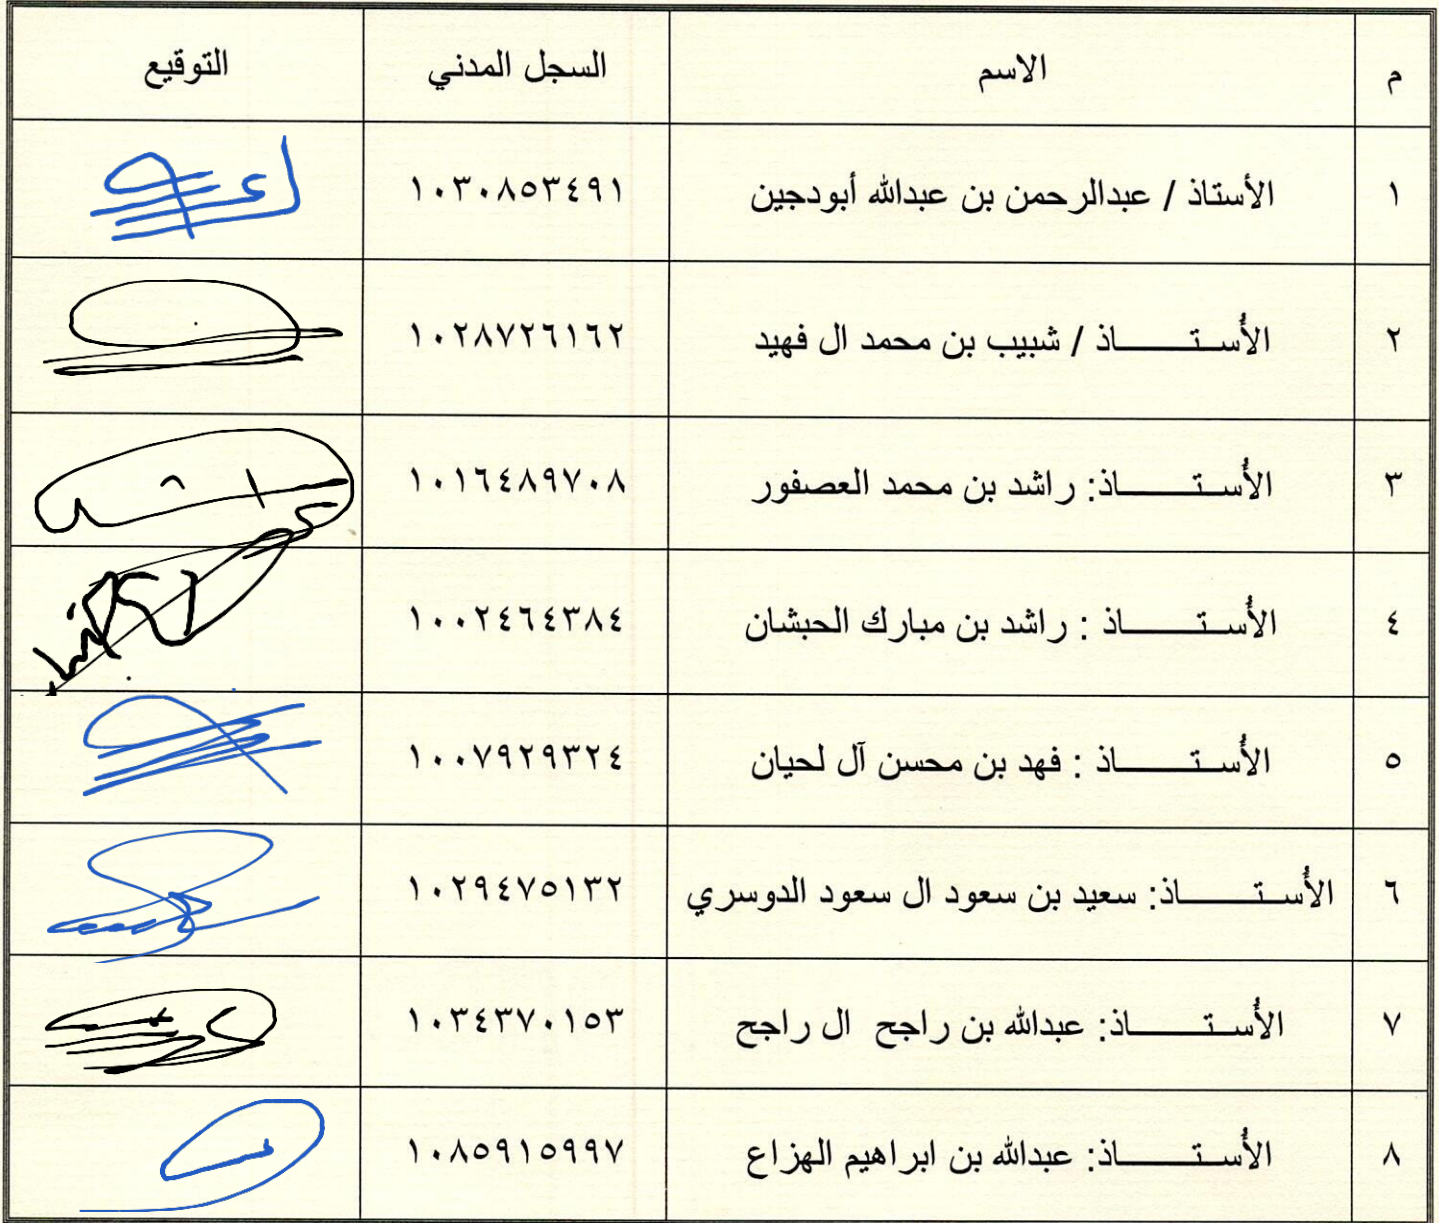 م الاسم السجل المدني التوقيع
١ الأستاذ / عبدالرحمن بن عبدالله أبودجين ١٠٣٠٨٥٣٤٩١
٢ الأُستـــــــاذ / شبيب بن محمد ال فهيد ١٠٢٨٧٢٦١٦٢
٣ الأُستـــــــاذ: راشد بن محمد العصفور ١٠١٦٤٨٩٧٠٨
٤ الأُستـــــــاذ : راشد بن مبارك الحبشان ١٠٠٢٤٦٤٣٨٤
٥ الأُستـــــــاذ : فهد بن محسن آل لحيان ١٠٠٧٩٢٩٣٢٤
٦ الأُستـــــــاذ: سعيد بن سعود ال سعود الدوسري ١٠٢٩٤٧٥١٣٢
٧ الأُستـــــــاذ: عبدالله بن راجح ال راجح ١٠٣٤٣٧٠١٥٣
٨ الأُستـــــــاذ: عبدالله بن ابراهيم الهزاع ١٠٨٥٩١٥٩٩٧